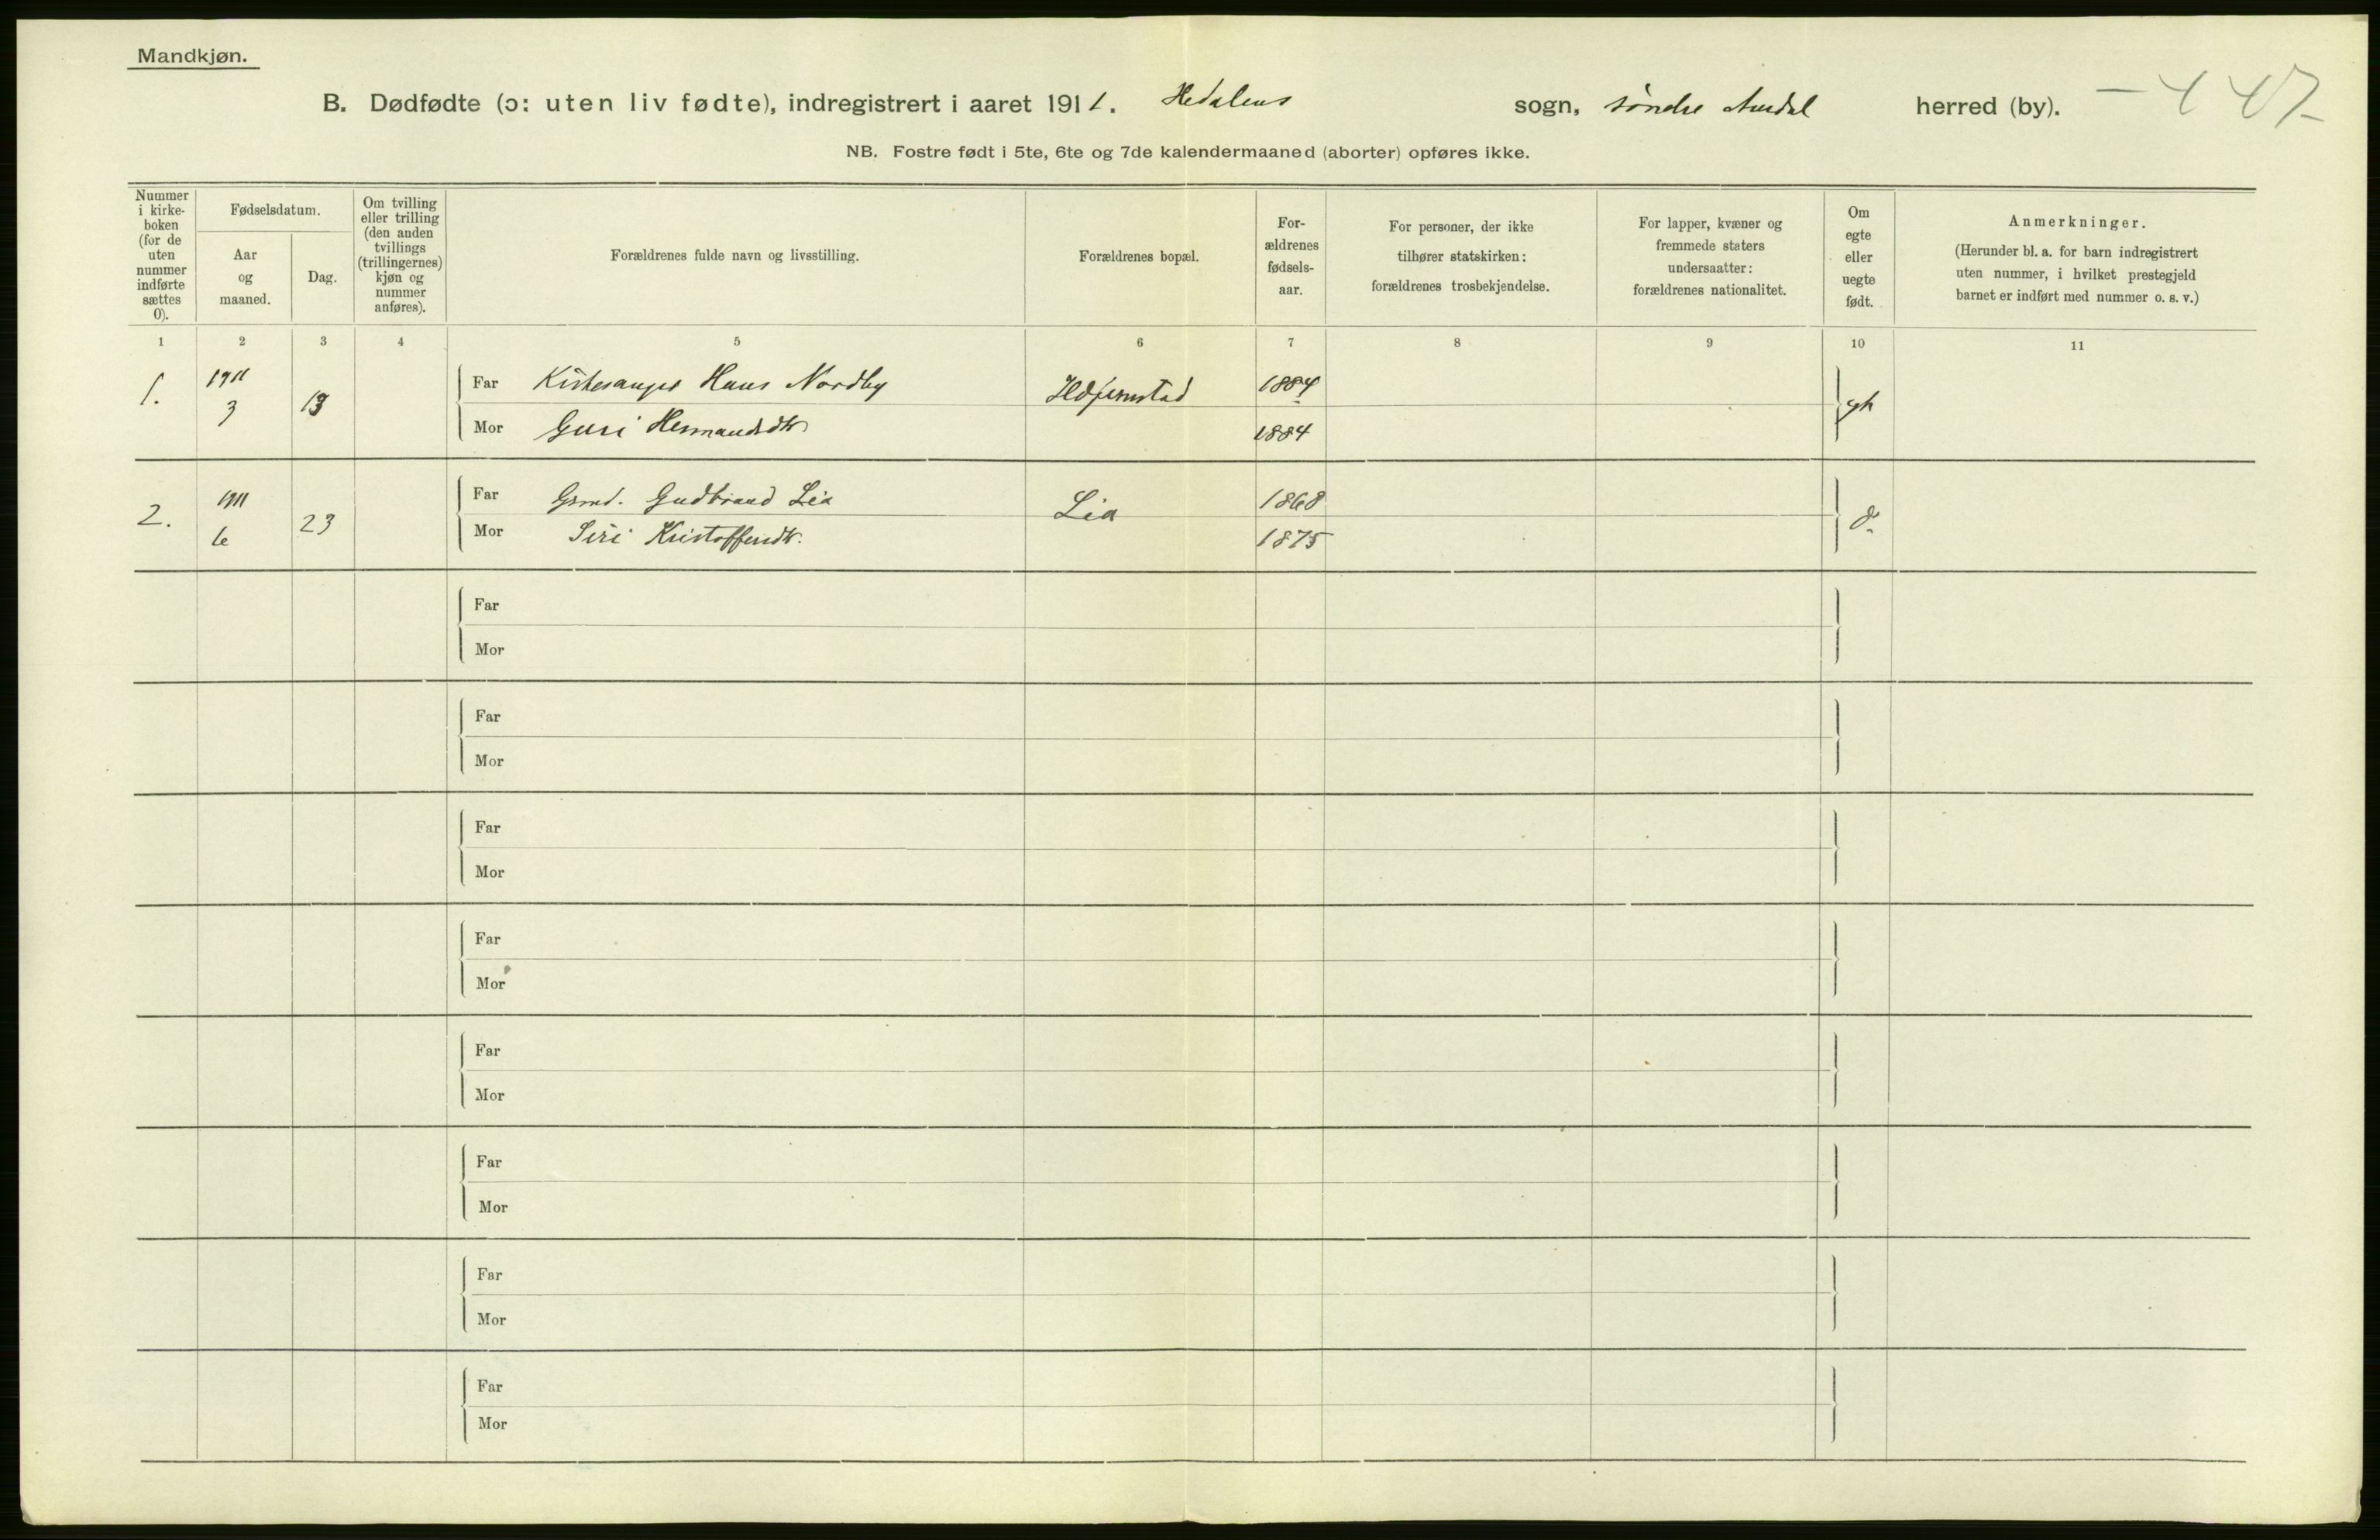 Mandkjøn.
B. Dødfødte (ɔ: uten liv fødte), indregistrert i aaret 1911. Hedalens sogn, søndre Aurdal herred (by).
NB. Fostre født i 5te, 6te og 7de kalendermaaned (aborter) opføres ikke.
Nummer
i kirke-
boken
(for de
uten
nummer
indførte
sættes
0).
Fødselsdatum.
Aar
og
maaned.
Dag.
Om tvilling
eller trilling
(den anden
tvillings
(trillingernes)
kjøn og
nummer
anføres).
Forældrenes fulde navn og livsstilling.
Forældrenes bopæl.
For-
ældrenes
fødsels-
aar.
For personer, der ikke
tilhører statskirken:
forældrenes trosbekjendelse.
For lapper, kvæner og
fremmede staters
undersaatter:
forældrenes nationalitet.
Om
egte
eller
uegte
født.
Anmerkninger.
(Herunder bl. a. for barn indregistrert
uten nummer, i hvilket prestegjeld
barnet er indført med nummer o. s. v.)
1 2 3 4 5 6 7 8 9 10 11
1. 1911 3 13 Far Kirkesanger Hans Nordby 1884 egte
Mor Guri Hermandsdtr 1884
2. 1911 6 23 Far Grmd. Gudbrand Lia Lia 1868 do
Mor Siri Kristoffersdtr. 1875
Far
Mor
Far
Mor
Far
Mor
Far
Mor
Far
Mor
Far
Mor
Far
Mor
Far
Mor